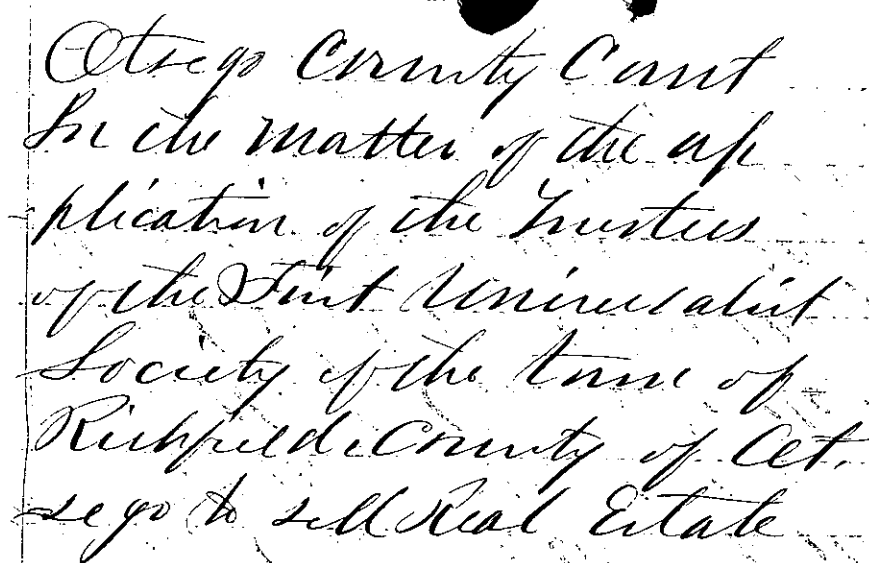 Otsego County Court
In the matter of the ap
plication of the Trustees
of the First Universalist
Society of the town of
Richfield County of Ot.
sego to sell Real Estate